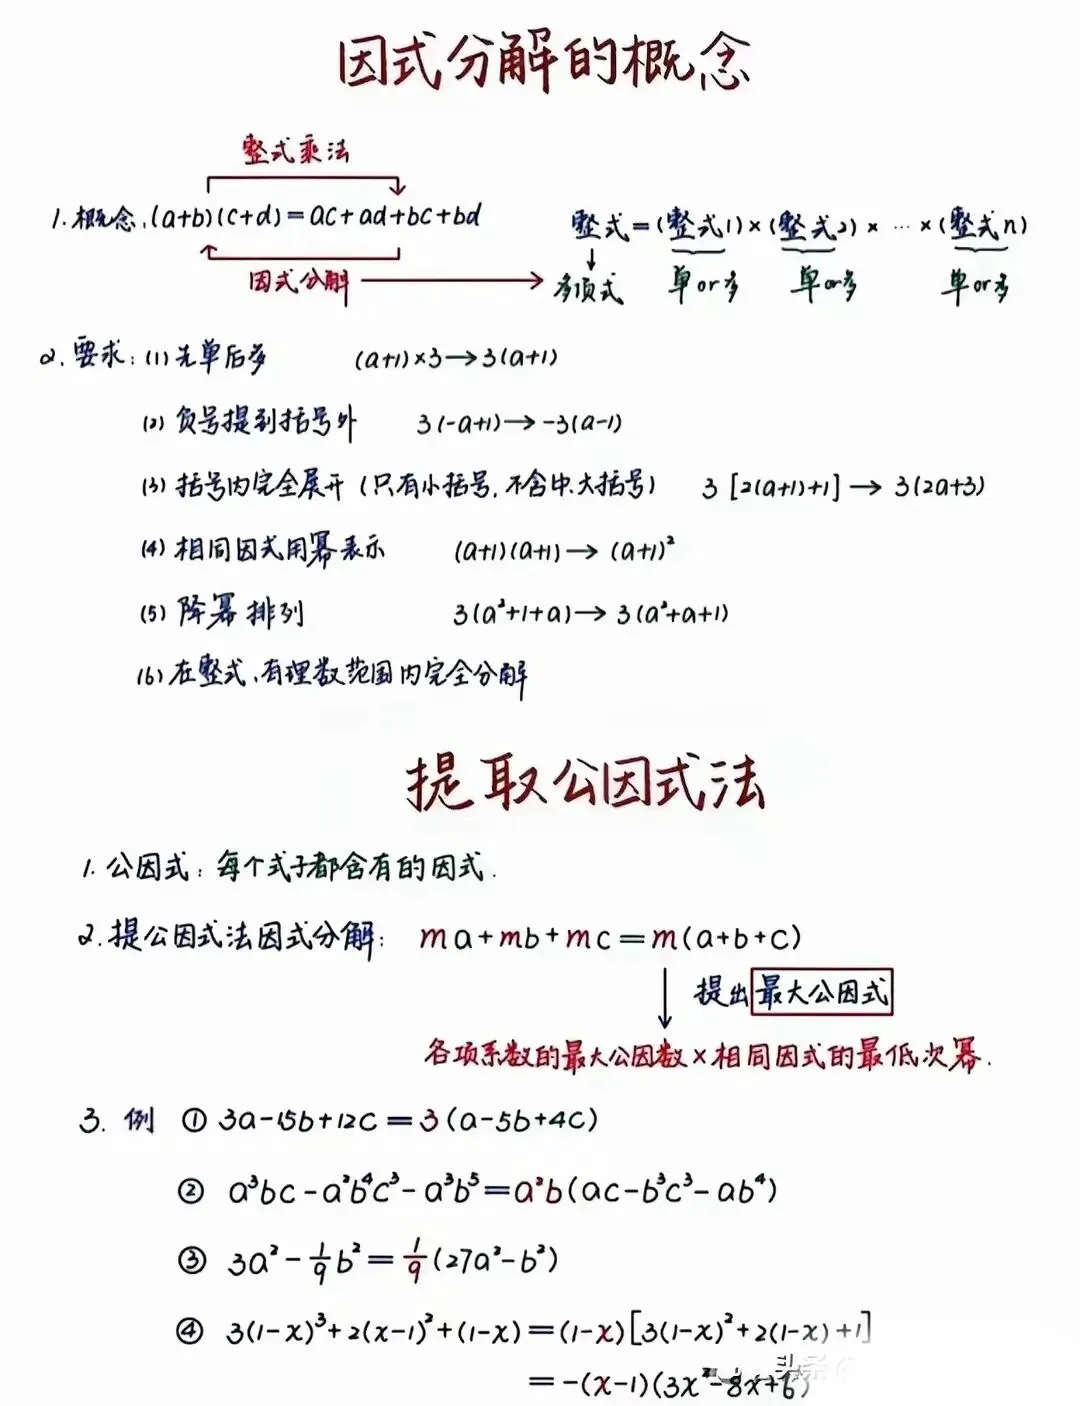 因式分解的概念
整式乘法
1. 概念. (a+b)(c+d)=ac+ad+bc+bd
因式分解
整式=(整式1)×(整式2)×…×(整式n)
多项式 单or多 单or多 单or多
2. 要求: (1) 先单后多 (a+1)×3→3(a+1)
(2) 负号提到括号外 3(-a+1)→-3(a-1)
(3) 括号内完全展开 (只有小括号, 不含中、大括号) 3[2(a+1)+1]→3(2a+3)
(4) 相同因式用幂表示 (a+1)(a+1)→(a+1)²
(5) 降幂排列 3(a²+1+a)→3(a²+a+1)
(6) 在整式、有理数范围内完全分解
提取公因式法
1. 公因式: 每个式子都含有的因式.
2. 提公因式法因式分解: ma+mb+mc=m(a+b+c)
提出最大公因式
各项系数的最大公因数×相同因式的最低次幂.
3. 例 ① 3a-15b+12c=3(a-5b+4c)
② a³bc-a²b⁴c³-a³b⁵=a²b(ac-b³c³-ab⁴)
③ 3a²-1/9b²=1/9(27a²-b²)
④ 3(1-x)³+2(x-1)²+(1-x)=(1-x)[3(1-x)²+2(1-x)+1]
=-(x-1)(3x²-8x+6)
头条@